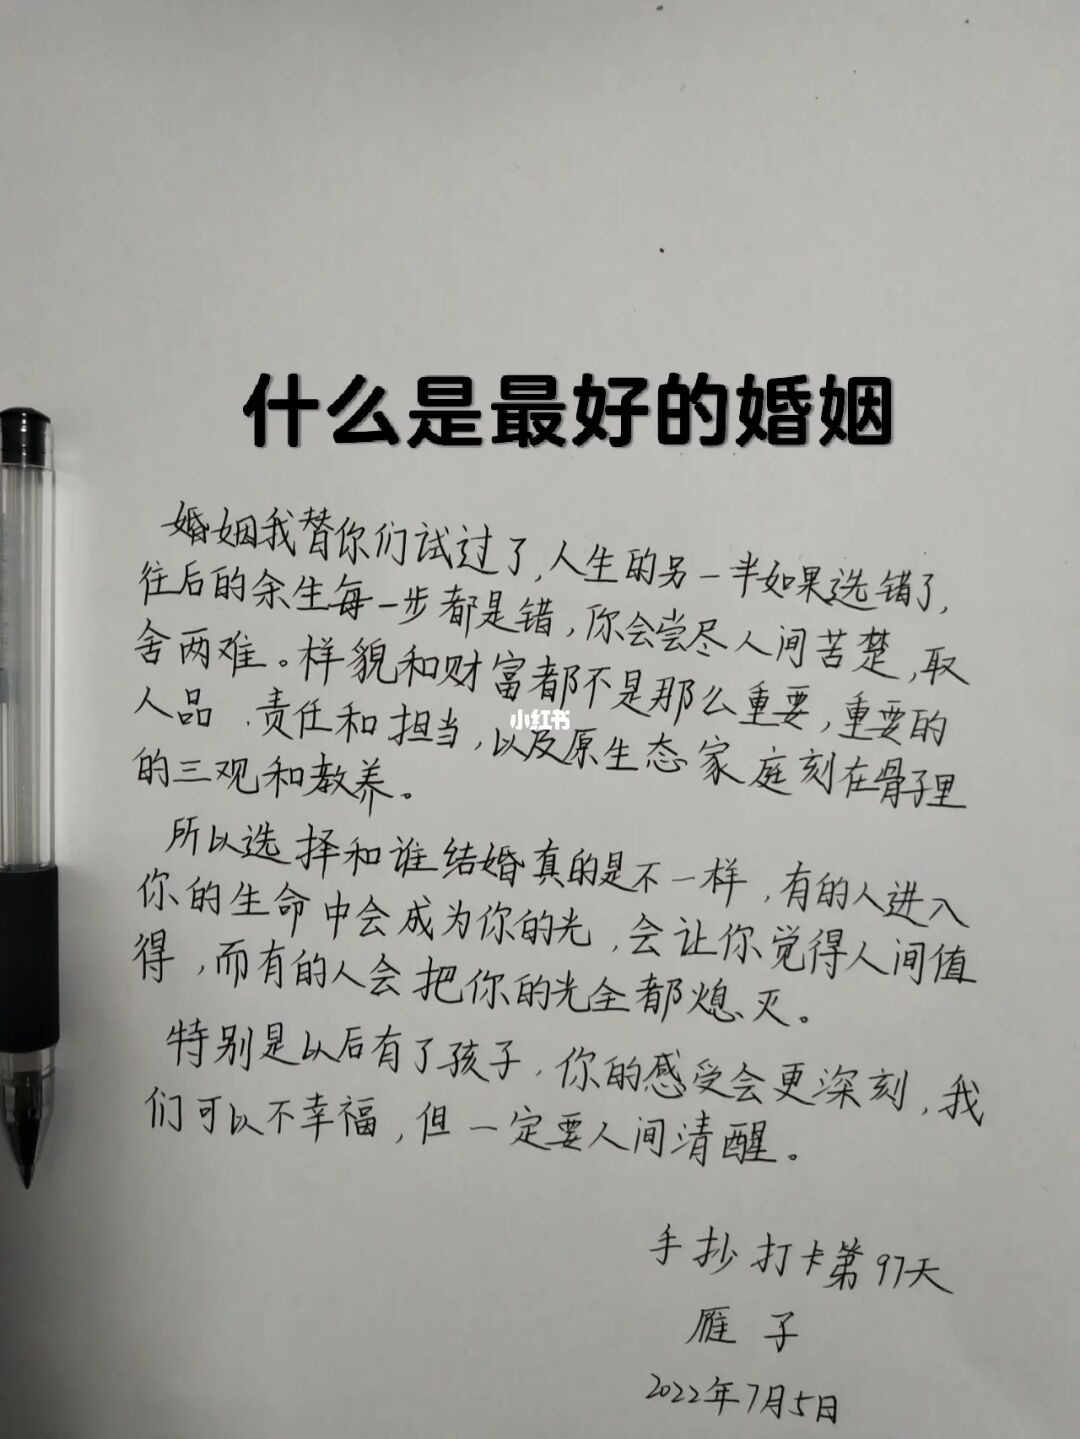 什么是最好的婚姻
婚姻我替你们试过了,人生的另一半如果选错了,
往后的余生每一步都是错,你会尝尽人间苦楚,取
舍两难。样貌和财富都不是那么重要,重要的
人品、责任和担当,以及原生态家庭刻在骨子里
的三观和教养。
小红书
所以选择和谁结婚真的是不一样,有的人进入
你的生命中会成为你的光,会让你觉得人间值
得,而有的人会把你的光全都熄灭。
特别是以后有了孩子,你的感受会更深刻,我
们可以不幸福,但一定要人间清醒。
手抄打卡第97天
雁子
2022年7月5日